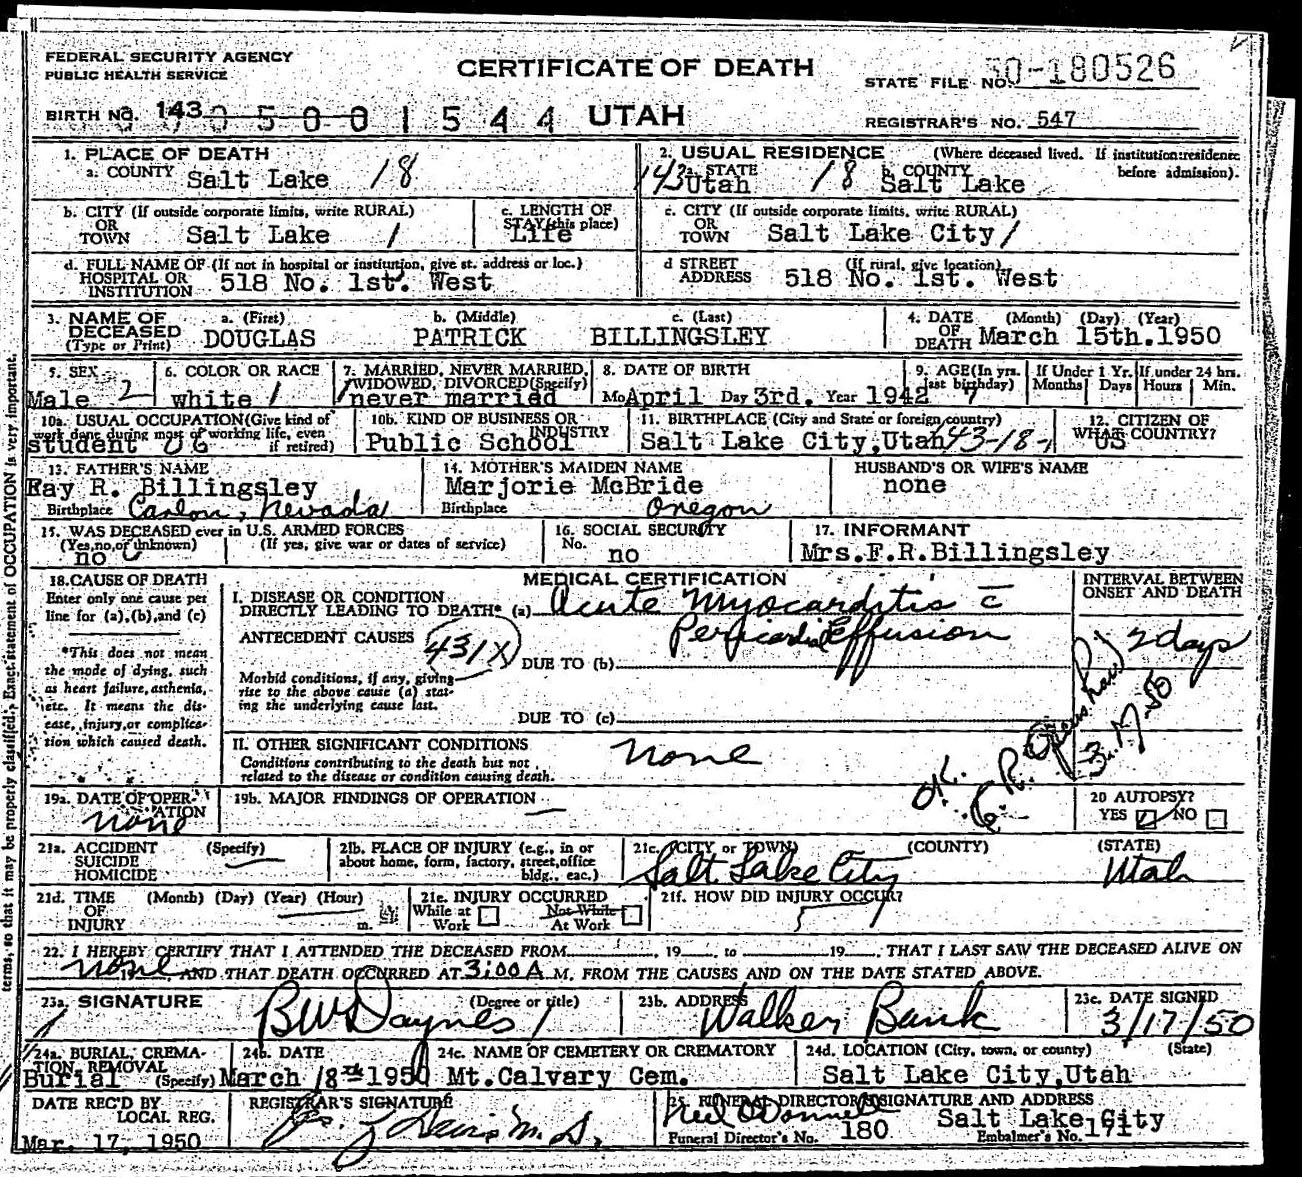 FEDERAL SECURITY AGENCY
PUBLIC HEALTH SERVICE
CERTIFICATE OF DEATH
STATE FILE NO. 50-180526
BIRTH NO. 143 0 5 0 0 1 5 4 4 UTAH
REGISTRAR'S NO. 547
1. PLACE OF DEATH
a. COUNTY Salt Lake 18
2. USUAL RESIDENCE (Where deceased lived. If institution: residence before admission).
143 a. STATE Utah 18 b. COUNTY Salt Lake
b. CITY (If outside corporate limits, write RURAL) OR TOWN Salt Lake 1
c. LENGTH OF STAY (this place) Life
c. CITY (If outside corporate limits, write RURAL) OR TOWN Salt Lake City 1
d. FULL NAME OF (If not in hospital or institution, give st. address or loc.) HOSPITAL OR INSTITUTION 518 No. 1st. West
d STREET ADDRESS (If rural, give location) 518 No. 1st. West
3. NAME OF DECEASED (Type or Print) a. (First) DOUGLAS b. (Middle) PATRICK c. (Last) BILLINGSLEY
4. DATE OF DEATH (Month) (Day) (Year) March 15th. 1950
5. SEX Male 2
6. COLOR OR RACE white 1
7. MARRIED, NEVER MARRIED, WIDOWED, DIVORCED (Specify) 1 never married
8. DATE OF BIRTH Mo April Day 3rd. Year 1942
9. AGE (In yrs. last birthday) 7
If Under 1 Yr. Months Days
If under 24 hrs. Hours Min.
10a. USUAL OCCUPATION (Give kind of work done during most of working life, even if retired) student
10b. KIND OF BUSINESS OR INDUSTRY Public School
11. BIRTHPLACE (City and State or foreign country) Salt Lake City, Utah 43-18-1
12. CITIZEN OF WHAT COUNTRY? US
13. FATHER'S NAME Fay R. Billingsley
Birthplace Carson, Nevada
14. MOTHER'S MAIDEN NAME Marjorie McBride
Birthplace Oregon
HUSBAND'S OR WIFE'S NAME none
15. WAS DECEASED ever in U.S. ARMED FORCES (Yes, no, or unknown) (If yes, give war or dates of service) no
16. SOCIAL SECURITY No. no
17. INFORMANT Mrs. F.R. Billingsley
18. CAUSE OF DEATH
Enter only one cause per line for (a), (b), and (c)
*This does not mean the mode of dying, such as heart failure, asthenia, etc. It means the disease, injury, or complication which caused death.
MEDICAL CERTIFICATION
INTERVAL BETWEEN ONSET AND DEATH
I. DISEASE OR CONDITION DIRECTLY LEADING TO DEATH* (a) Acute Myocarditis c̄
Pericardial Effusion
2 days
ANTECEDENT CAUSES 431X
DUE TO (b)
Morbid conditions, if any, giving rise to the above cause (a) stating the underlying cause last.
DUE TO (c)
II. OTHER SIGNIFICANT CONDITIONS none
Conditions contributing to the death but not related to the disease or condition causing death.
O.K.
3-17-50
19a. DATE OF OPERATION none
19b. MAJOR FINDINGS OF OPERATION —
20 AUTOPSY? YES ☑ NO ☐
21a. ACCIDENT SUICIDE HOMICIDE (Specify) —
21b. PLACE OF INJURY (e.g., in or about home, form, factory, street, office bldg., eac.)
21c. (CITY or TOWN) (COUNTY) (STATE)
Salt Lake City Utah
21d. TIME OF INJURY (Month) (Day) (Year) (Hour) m.
21e. INJURY OCCURRED While at Work ☐ Not While At Work ☐
21f. HOW DID INJURY OCCUR?
22. I HEREBY CERTIFY THAT I ATTENDED THE DECEASED FROM , 19 to 19 , THAT I LAST SAW THE DECEASED ALIVE ON
none, AND THAT DEATH OCCURRED AT 3:00A M. FROM THE CAUSES AND ON THE DATE STATED ABOVE.
23a. SIGNATURE (Degree or title) BW Daynes
23b. ADDRESS Walker Bank
23c. DATE SIGNED 3/17/50
24a. BURIAL, CREMATION, REMOVAL (Specify) Burial
24b. DATE March 18th 1950
24c. NAME OF CEMETERY OR CREMATORY Mt. Calvary Cem.
24d. LOCATION (City, town, or county) (State) Salt Lake City, Utah
DATE REC'D BY LOCAL REG. Mar. 17, 1950
REGISTRAR'S SIGNATURE
25. FUNERAL DIRECTOR'S SIGNATURE AND ADDRESS Neil O'Donnell Salt Lake City
Funeral Director's No. 180 Embalmer's No. 171
terms, so that it may be properly classified. Exact statement of OCCUPATION is very important.